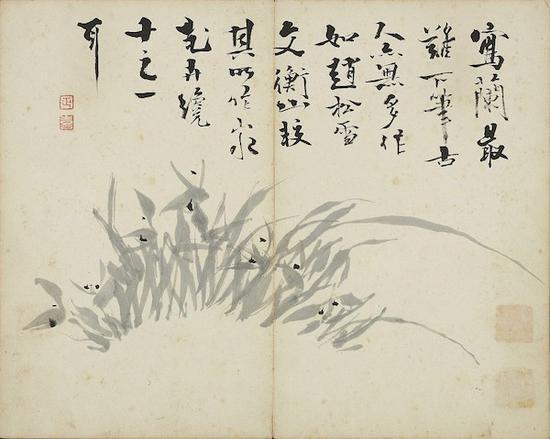 寫蘭最
難下筆古
人亦無多作
如趙松雪
文衡山較
其所作
花卉纔
十之一
耳